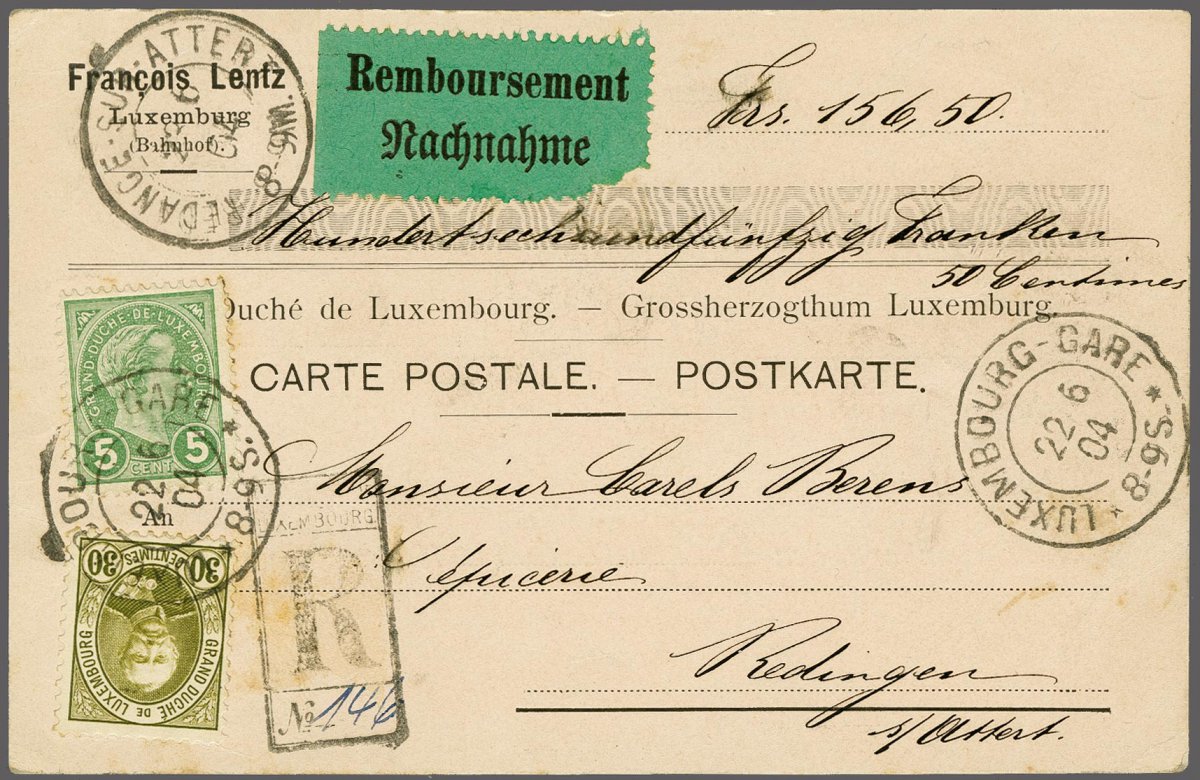 François Lentz
Luxemburg
(Bahnhof).
REDANGE-SUR-ATTERT
8-9M.
23 6
04
Remboursement
Nachnahme
Frs. 156,50.
Hundertsechsundfünfzig Franken
50 Centimes
Duché de Luxembourg. — Grossherzogthum Luxemburg.
CARTE POSTALE. — POSTKARTE.
GRAND-DUCHÉ-DE-LUXEMBOURG
5 5
CENT
GARE *
22 6
04
8-9S.
LUXEMBOURG-GARE *
22 6
04
8-9S.
An
Monsieur Carels Berens
épicerie
Redingen
s/Attert.
LUXEMBOURG
R
No 146
30 30
CENTIMES
GRAND DUCHÉ DE LUXEMBOURG